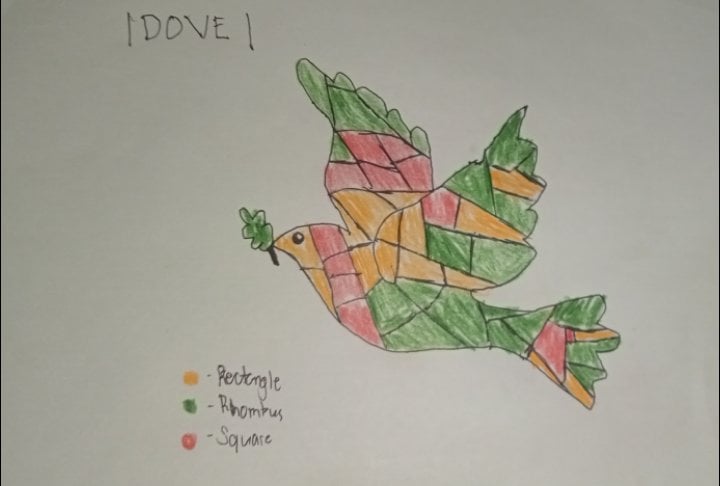 |DOVE|
- Rectangle
- Rhombus
- Square